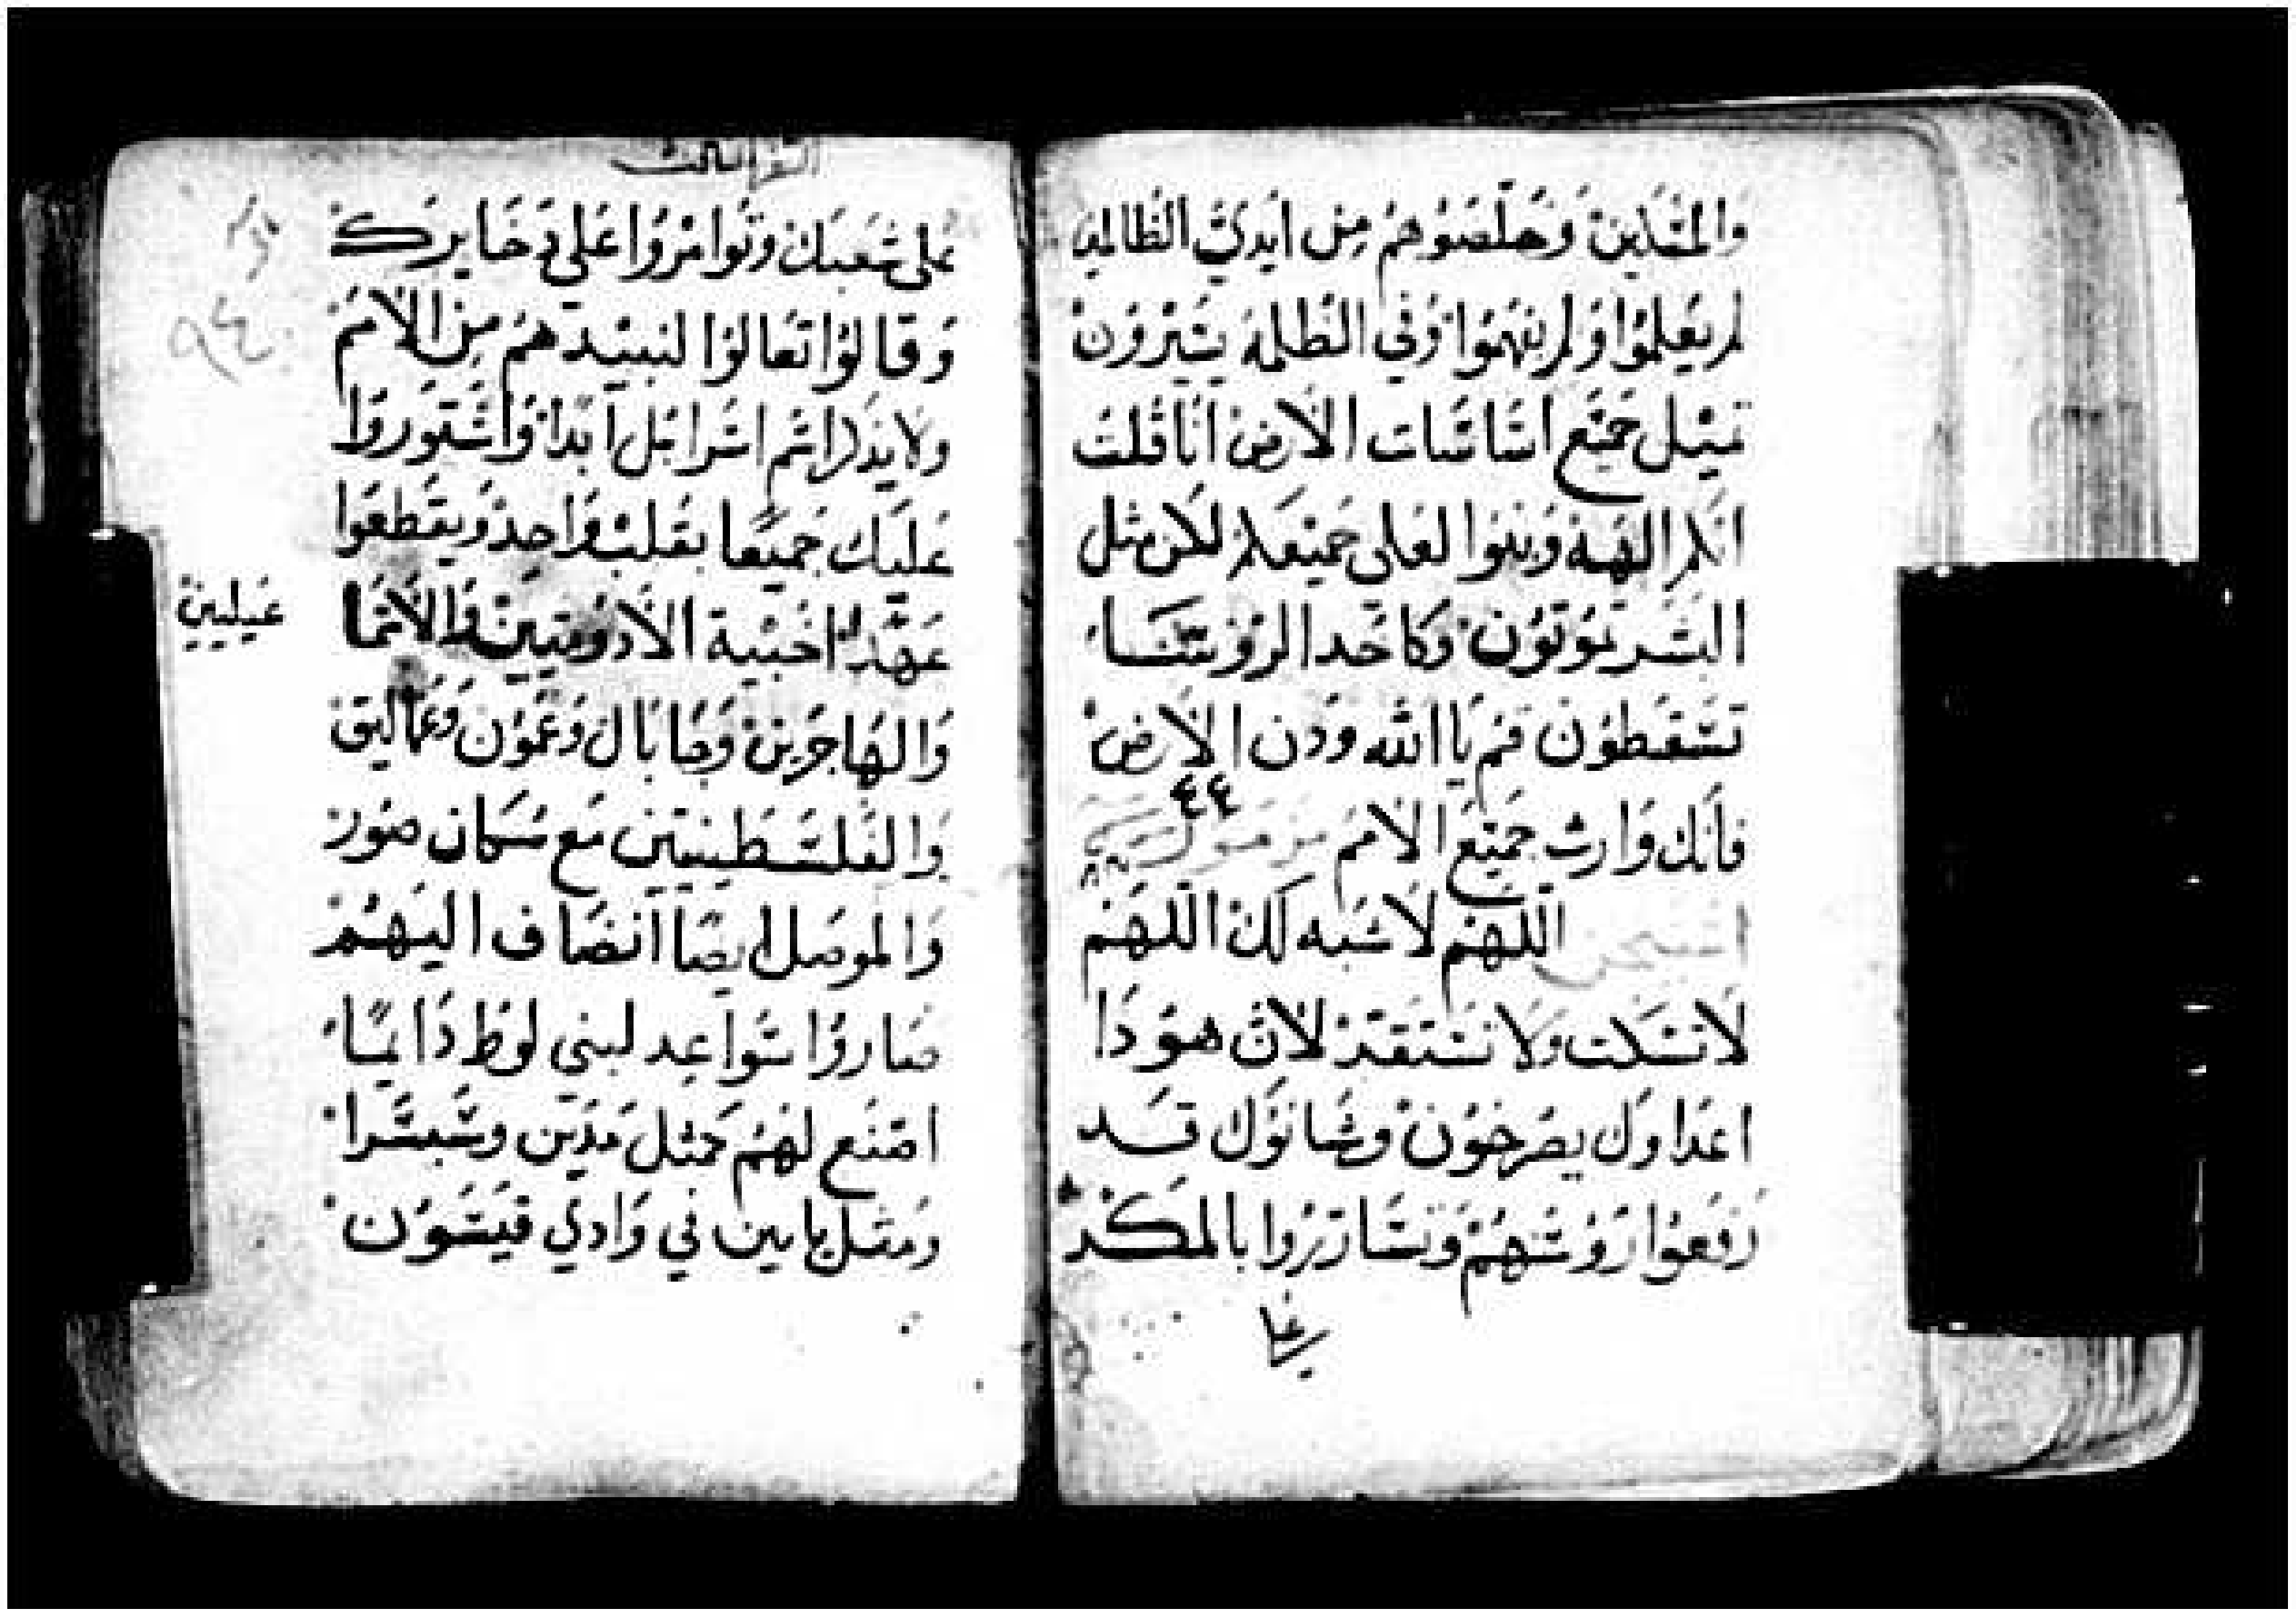 والمنقذين وخلصوهم من ايدي الظالمين
لم يعلموا ولم يفهموا وفي الظلمة يسيرون
تميل جميع اساسات الارض انا قلت
انكم الهة وبنوا لعلي جميعكم لكن مثل
البشر تموتون وكاحد الروسا
تسقطون قم يا الله ودن الارض
فانك وارث جميع الامم مزمور
٤٤ ٨٢
اللهم لا شبه لك اللهم
لا تسكت ولا تستقر لان هوذا
اعداوك يصرخون وشانؤك قد
رفعوا رؤسهم وتسارروا بالمكر
على
الثالث
على شعبك وتوامروا على ذخايرك
وقالوا تعالوا لنبيدهم من الامم
ولا يذكر اسم اسرايل ابدا واشتوروا
عليك جميعا بقلب واحد ويقطعوا
عهدا اخبية الادوميين والاسما
عيليين
والهاجريين وجابال وعمون وعماليق
والفلسطينيين مع سكان صور
والموصل ايضا انضاف اليهم
صاروا سواعد لبني لوط دايما
اصنع لهم كمثل مدين وسيسرا
ومثل يابين في وادي قيسون